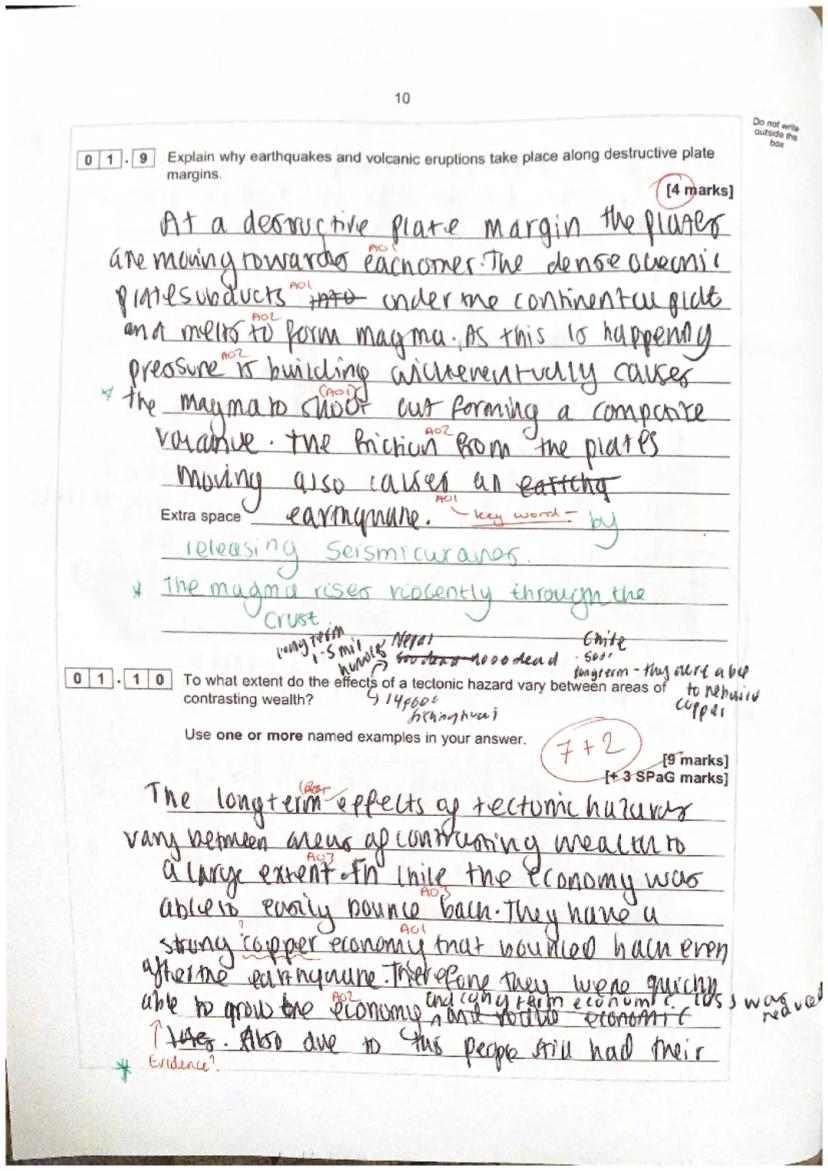 10
Do not write
outside the
box
0 1 . 9 Explain why earthquakes and volcanic eruptions take place along destructive plate
margins.
[4 marks]
At a destructive plate margin the plates
are moving towards eachother. The dense oceanic
AO1
plate subducts into under the continental plat
AO1
and melts to form magma. As this is happening
AO2
pressure is building which eventually causes
AO2
* the magma to shoot out forming a composite
(AO1)
volcanoe. The friction from the plates
AO2
moving also causes an earthq
Extra space earthquake. by
AO1 key word -
releasing seismic waves.
* The magma rises violently through the
crust
long term Nepal Chile
1.5 mil 9000 dead 500
homeless longterm - they were able
0 1 . 1 0 To what extent do the effects of a tectonic hazard vary between areas of
to rebuild
contrasting wealth?
copper
Use one or more named examples in your answer.
7+2
[9 marks]
[+ 3 SPaG marks]
The longterm effects of tectonic hazards
vary between areas of contrasting wealth to
a large extent. In Chile the economy was
AO3
able to easily bounce back. They have a
AO3
strong copper economy that bounced back even
? AO1
after the earthquake. Therefore they were quickly
able to grow the economie and long term economic loss was
AO2
and economic
reduced
. Also due to this people still had their
* Evidence?